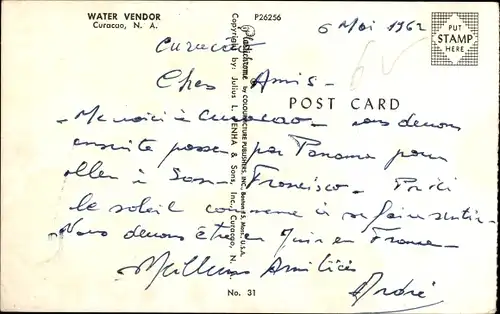 WATER VENDOR
Curacao, N. A.
P26256
6 Mai 1962
PUT
STAMP
HERE
Curacao
Chers Amis -
POST CARD
- Me voici à Curacao - nous devons
ensuite passer par Panama pour
aller à San Francisco -
le soleil commence à se faire sentir -
Nous devons être en Juin en France -
Meilleures Amitiés
André
Plastichrome by COLOURPICTURE PUBLISHERS, INC., Boston 15, Mass., U.S.A.
Copyright by: Julius L. PENHA & Sons, Inc., Curacao, N.
No. 31